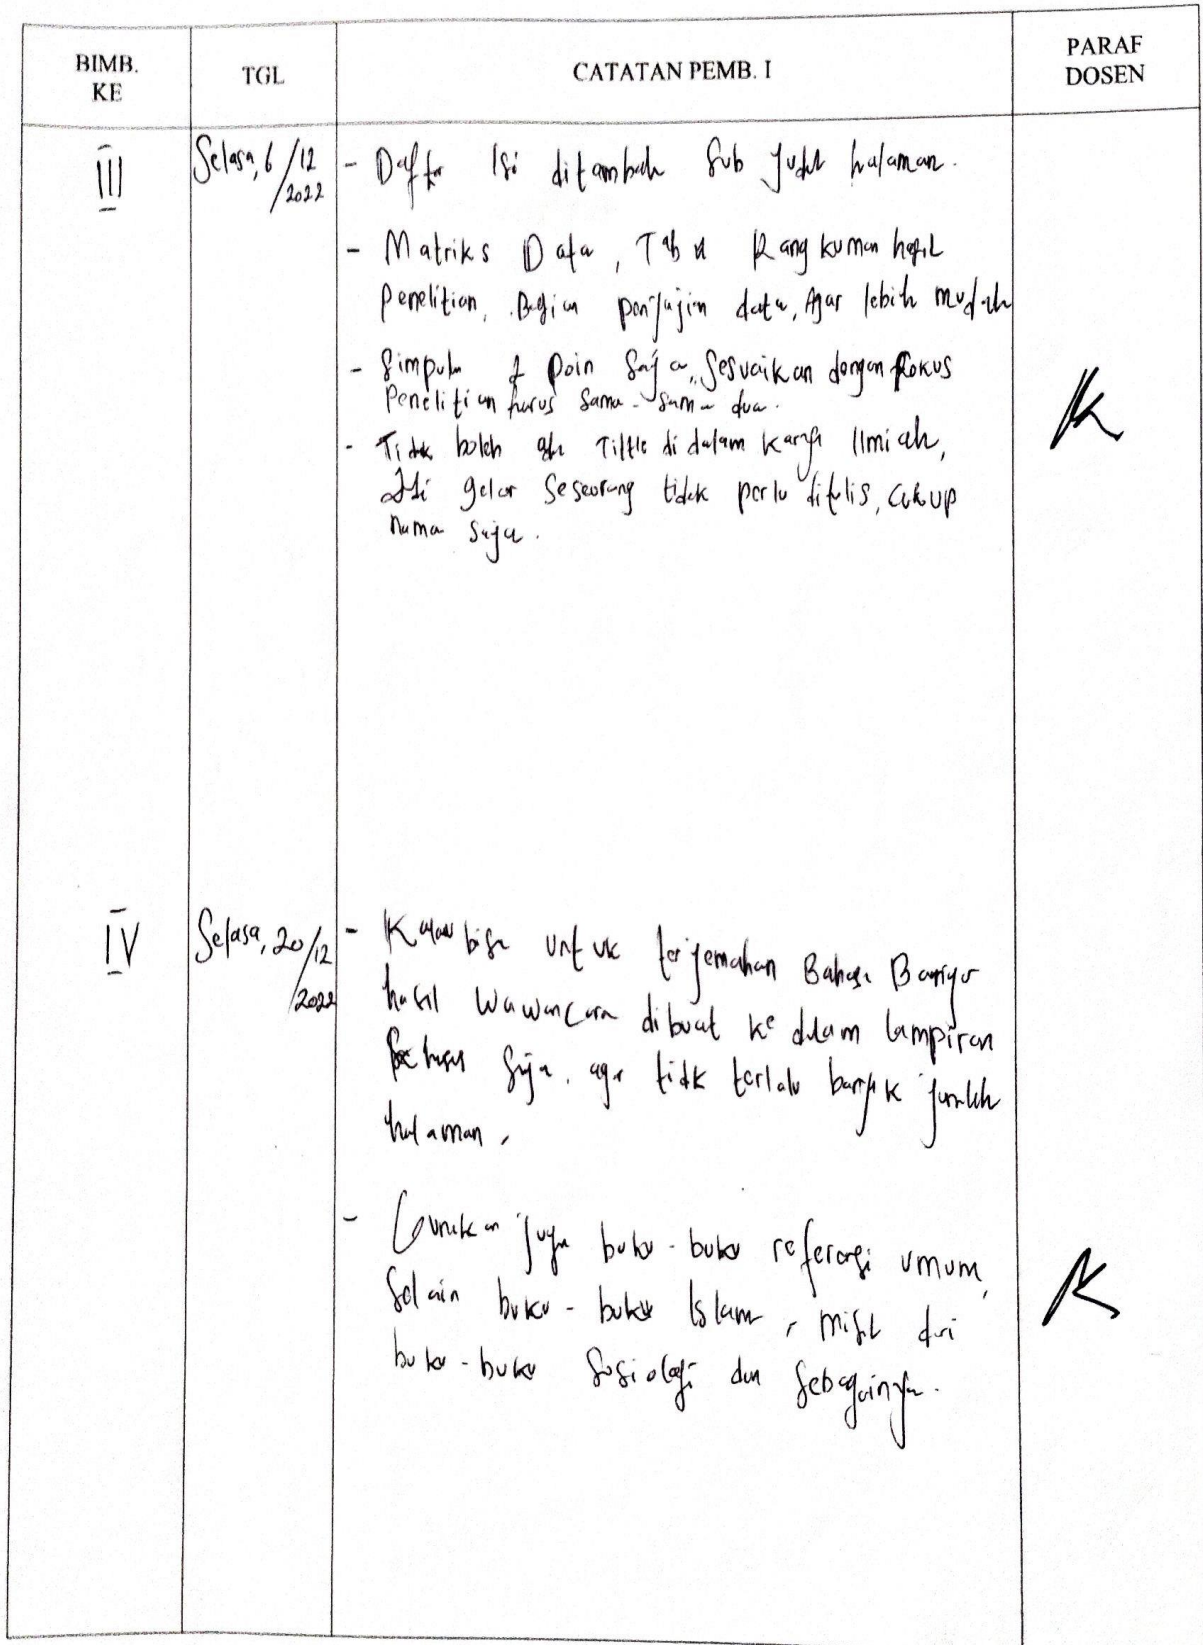 BIMB.
KE
TGL
CATATAN PEMB. I
PARAF
DOSEN
III
Selasa, 6/12
/2022
- Daftar Isi ditambah Sub judul halaman.
- Matriks Data, Tabel Rangkuman hasil
Penelitian, Bagian penyajian data, Agar lebih mudah
- Simpulan 2 Poin Saja, Sesuaikan dengan fokus
Penelitian harus sama-sama dua.
- Tidak boleh ada Tittle di dalam karya Ilmiah,
Jdi gelar Seseorang tidak perlu ditulis, cukup
nama saja.
IV
Selasa, 20/12
/2022
- Kalau bisa untuk terjemahan Bahasa Banjar
hasil wawancara dibuat ke dalam lampiran
saja, agar tidak terlalu banyak jumlah
halaman,
- Gunakan juga buku-buku referensi umum,
Selain buku-buku Islam, misal dari
buku-buku Sosiologi dan Sebagainya.